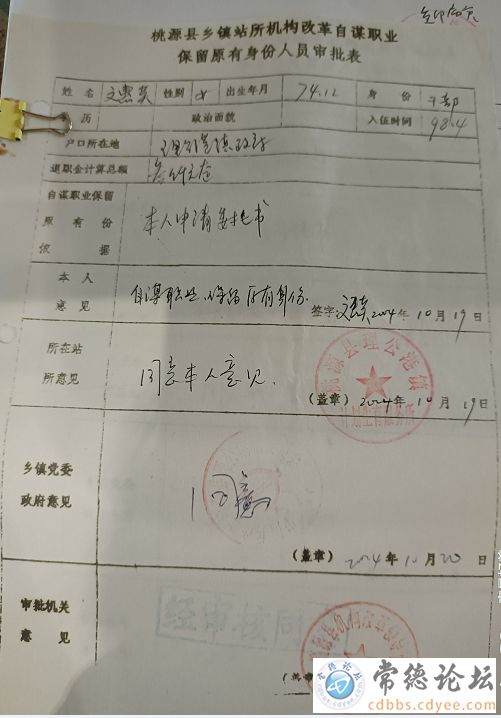 桃源县乡镇站所机构改革自谋职业
保留原有身份人员审批表
姓名 性别 女 出生年月 74.12 身份 干部
学历 政治面貌 入伍时间 98.4
户口所在地 理公港镇政府
退职金计算总额
自谋职业保留
原有身份
依据
本人申请委托书
本人
意见
自谋职业,保留原有身份
签字: 2004年10月19日
所在站
所意见
同意本人意见.
桃源县理公港镇
计划生育服务所
(盖章) 2004年10月19日
乡镇党委
政府意见
同意
(盖章) 2004年10月20日
审批机关
意见
经审核同
(盖章)
常德论坛
cdbbs.cdyee.com